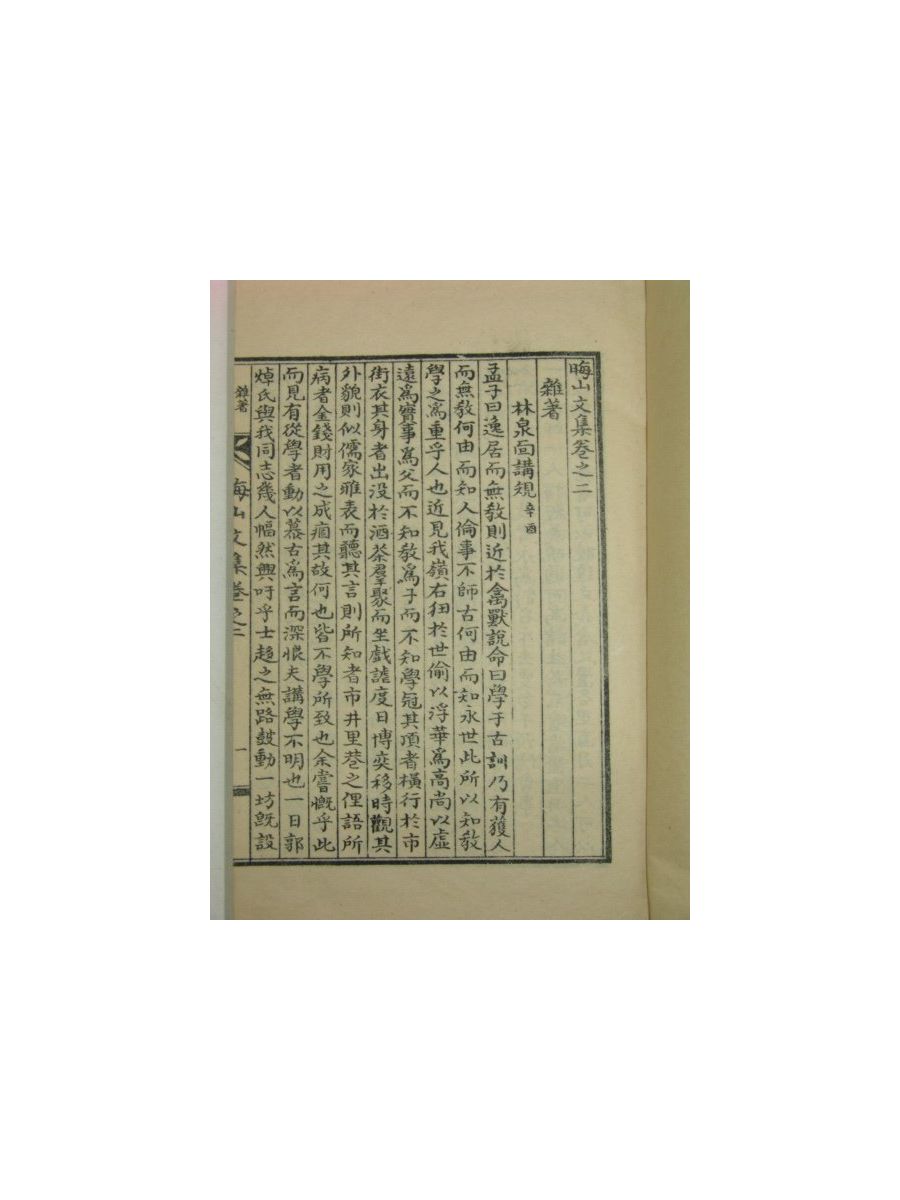 晦山文集卷之二
雜著
林泉面講規 辛酉
孟子曰逸居而無敎則近於禽獸說命曰學于古訓乃有獲人
而無敎何由而知人倫事不師古何由而知永世此所以知敎
學之爲重乎人也近見我嶺右狃於世偷以浮華爲高尙以虛
遠爲實事爲父而不知敎爲子而不知學冠其頂者橫行於市
街衣其身者出沒於酒茶羣聚而坐戱謔度日博奕移時觀其
外貌則似儒家雅表而聽其言則所知者市井里巷之俚語所
病者金錢財用之成痼其故何也皆不學所致也余嘗慨乎此
而見有從學者動以慕古爲言而深恨夫講學不明也一日郭
焯氏與我同志幾人幅然興吁乎士趍之無路鼓動一坊旣設
雜著
晦山文集卷之二
一